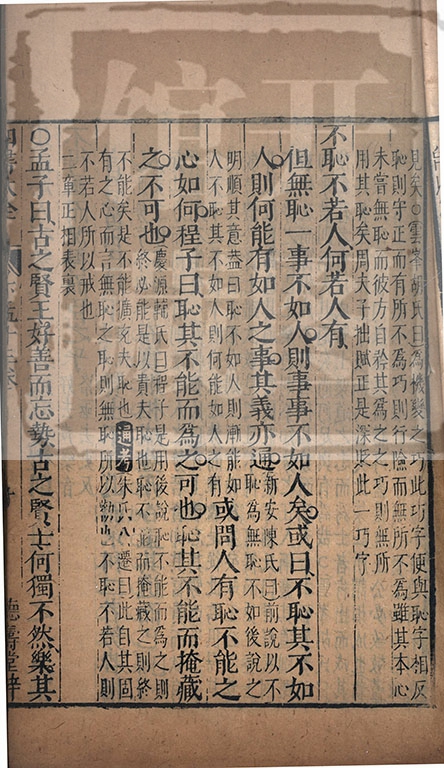 見矣○雲峯胡氏曰為機變之巧此巧字便與恥字相反
恥則守正而有所不為巧則行險而無所不為雖其本心
未嘗無恥而彼方自矜其為之之巧則無所
用其恥矣周夫子拙賦正是深貶此一巧字
不恥不若人何若人有
但無恥一事不如人則事事不如人矣或曰不恥其不如
人則何能有如人之事其義亦通新安陳氏曰前說以不
恥為無恥不如後說之
明順其意蓋曰恥不如人則漸能如
人不恥其不如人則何能如人之有或問人有恥不能之
心如何程子曰恥其不能而為之可也恥其不能而掩藏
之不可也慶源輔氏曰程子是用後說恥不能而為之則
終必能是以貴夫恥也恥不能而掩藏之則終
不能矣是不能擴充夫恥也通考朱氏公遷曰此自其固
有之心而言無恥之恥則無恥所以勸也不恥不若人則
不若人所以戒也
二章正相表裏
○孟子曰古之賢王好善而忘勢古之賢士何獨不然樂其
四書大全
德壽堂梓